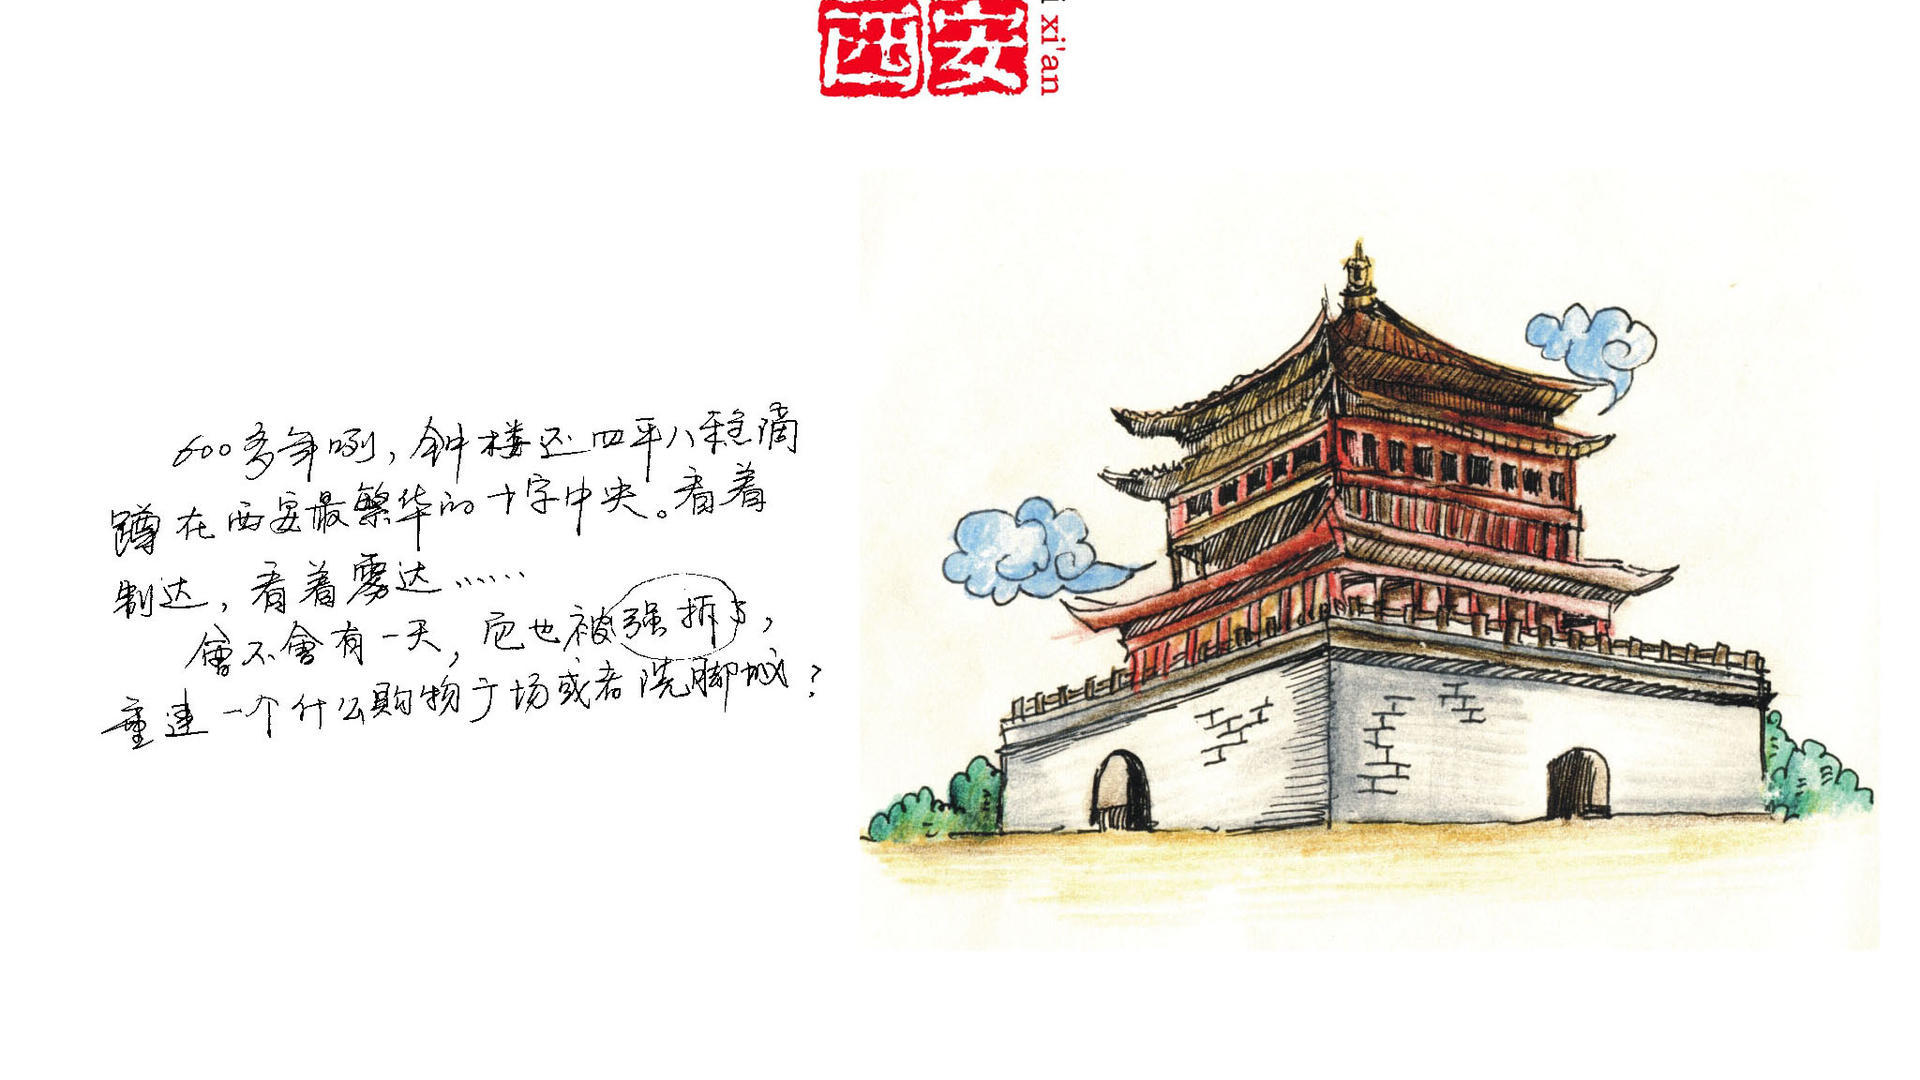 西安
i xi'an
600多年咧，钟楼还四平八稳滴
蹲在西安最繁华的十字中央。看着
制达，看着雾达……
會不會有一天，它也被强拆了，
重建一个什么购物广场或者洗脚城？